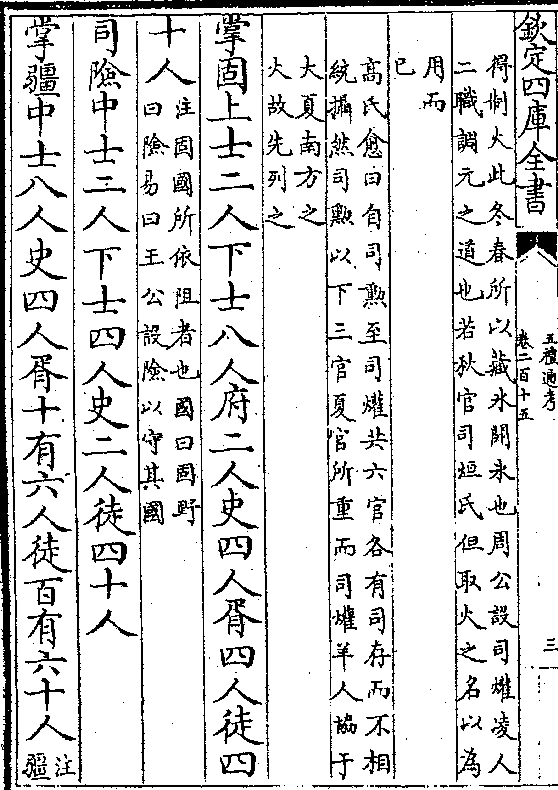 欽定四庫全書
五禮通考
卷二百十五
三
得制火此冬春所以藏氷開氷也周公設司爟凌人
二職調元之道也若秋官司烜氏但取火之名以為
用而
已
高氏愈曰自司勲至司爟共六官各有司存而不相
統攝然司勲以下三官夏官所重而司爟羊人協于
大夏南方之
火故先列之
掌固上士二人下士八人府二人史四人胥四人徒四
十人
注固國所依阻者也國曰固野
曰險易曰王公設險以守其國
司險中士二人下士四人史二人徒四十人
掌疆中士八人史四人胥十有六人徒百有六十人
注
疆